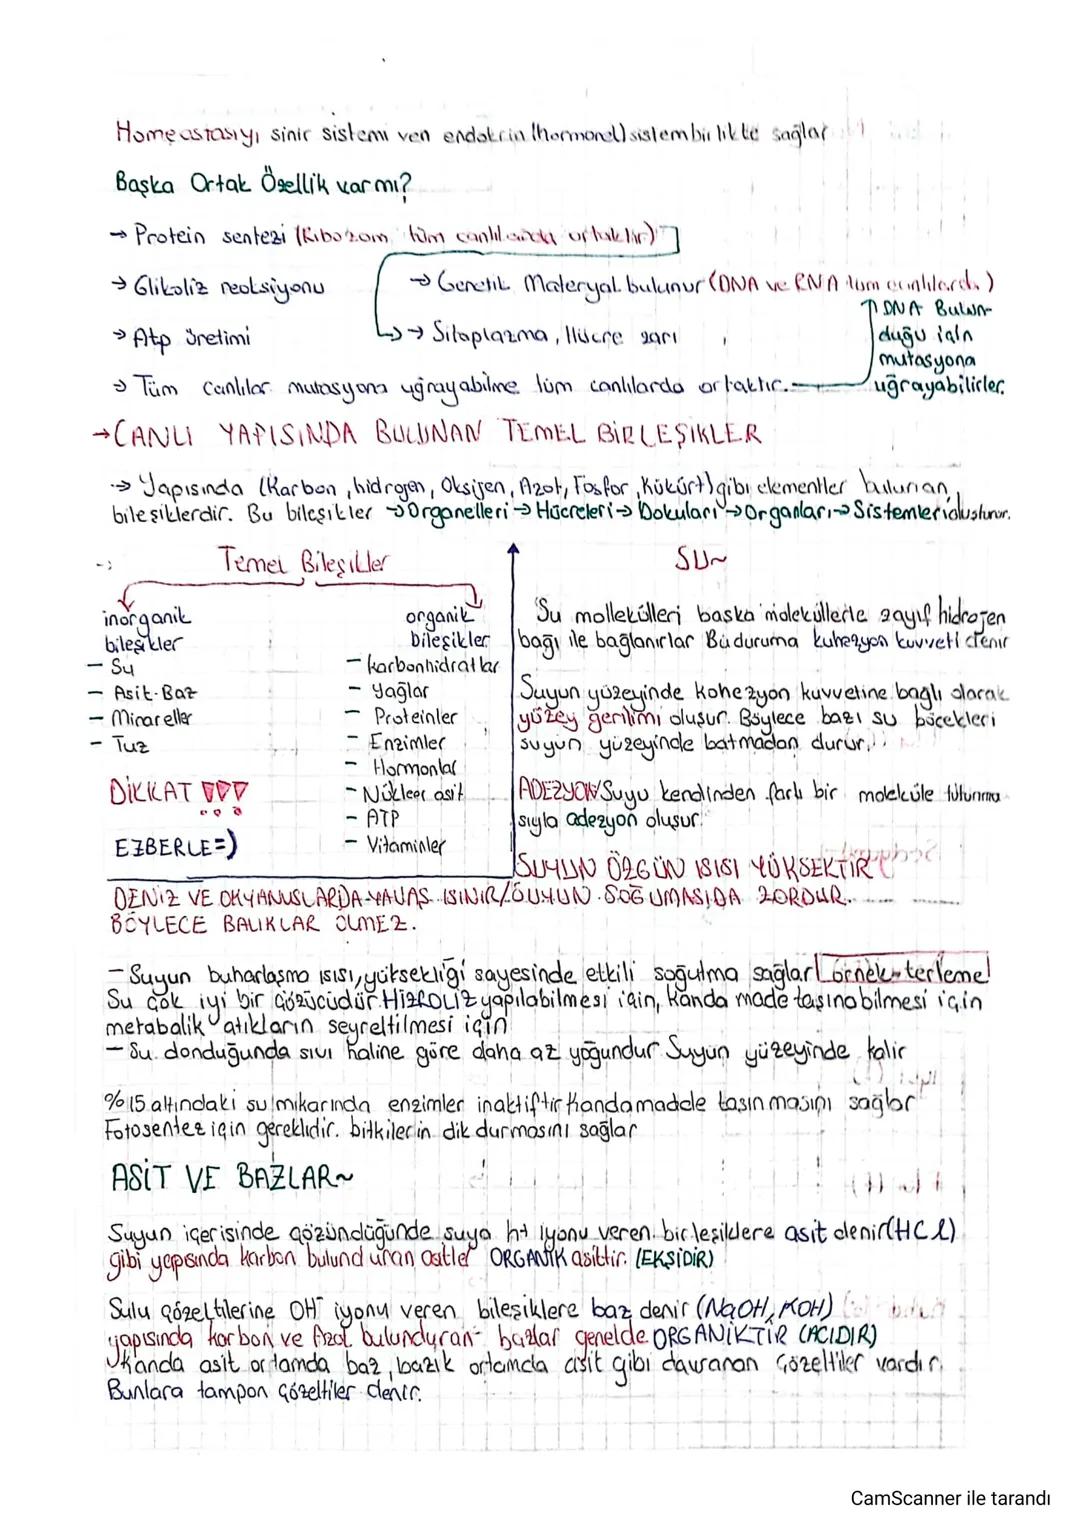 Homeastasıyı sinir sistemi ven endokrin (hormonel) sistem birlikte sağlar
Başka Ortak Özellik var mı?
→ Protein sentezi (Ribozom tüm canlılarda ortaktır)
→ Glikoliz reaksiyonu
→ Genetik Materyal bulunur (DNA ve RNA tüm canlılarda)
→ Atp üretimi
→ Sitoplazma, Hücre zarı
DNA Bulun-
duğu için
mutasyona
uğrayabilirler.
→ Tüm canlılar mutasyona uğrayabilme tüm canlılarda ortaktır.
→ CANLI YAPISINDA BULUNAN TEMEL BİRLEŞİKLER
→ Yapısında (Karbon, hidrojen, Oksijen, Azot, Fosfor, Kükürt) gibi elementler bulunan
bileşiklerdir. Bu bileşikler → Organelleri → Hücreleri → Dokuları → Organları → Sistemleri oluşturur.
Temel Bileşikler
inorganik
bileşikler
- Su
- Asit-Baz
- Minareller
- Tuz
DİKKAT !!!
EZBERLE =)
organik
bileşikler
- karbonhidratlar
- Yağlar
- Proteinler
- Enzimler
- Hormonlar
- Nükleer asit
- ATP
- Vitaminler
SU~
Su mollekülleri başka moleküllerle zayıf hidrojen
bağı ile bağlanırlar Bu duruma kuhezyon kuvveti denir
Suyun yüzeyinde kohezyon kuvvetine bağlı olarak
yüzey gerilimi oluşur. Böylece bazı su böcekleri
suyun yüzeyinde batmadan durur.
ADEZYON Suyu kendinden farlı bir moleküle tutunma
sıyla adezyon oluşur.
SUYUN ÖZGÜN ISISI YÜKSEKTİR
DENİZ VE OKYANUSLARDA YAVAŞ ISINIR/SUYUN SOĞUMASIDA ZORDUR.
BÖYLECE BALIKLAR ÖLMEZ.
- Suyun buharlaşma ısısı, yüksekliği sayesinde etkili soğulma sağlar örnek-terleme
Su çok iyi bir çözücüdür. HİZROLİZ yapılabilmesi için, kanda made taşınabilmesi için
metabalik atıkların seyreltilmesi için
- Su donduğunda sıvı haline göre daha az yoğundur Suyun yüzeyinde kalır
%15 altındaki su mikarında enzimler inaktiftir Kanda madde taşınmasını sağlar
Fotosentez için gereklidir. bitkilerin dik durmasını sağlar
ASİT VE BAZLAR~
Suyun içerisinde çözündüğünde suya h+ iyonu veren birleşiklere asit denir (HCl)
gibi yapısında karbon bulunduran asitler ORGANİK asittir. (EKŞİDİR)
Sulu çözeltilerine OH⁻ iyonu veren bileşiklere baz denir (NaOH, KOH)
yapısında karbon ve Azot bulunduran bazlar genelde ORGANİKTİR (ACIDIR)
Kanda asit ortamda baz, bazik ortamda asit gibi davranan çözeltiler vardır.
Bunlara tampon çözeltiler denir.
CamScanner ile tarandı